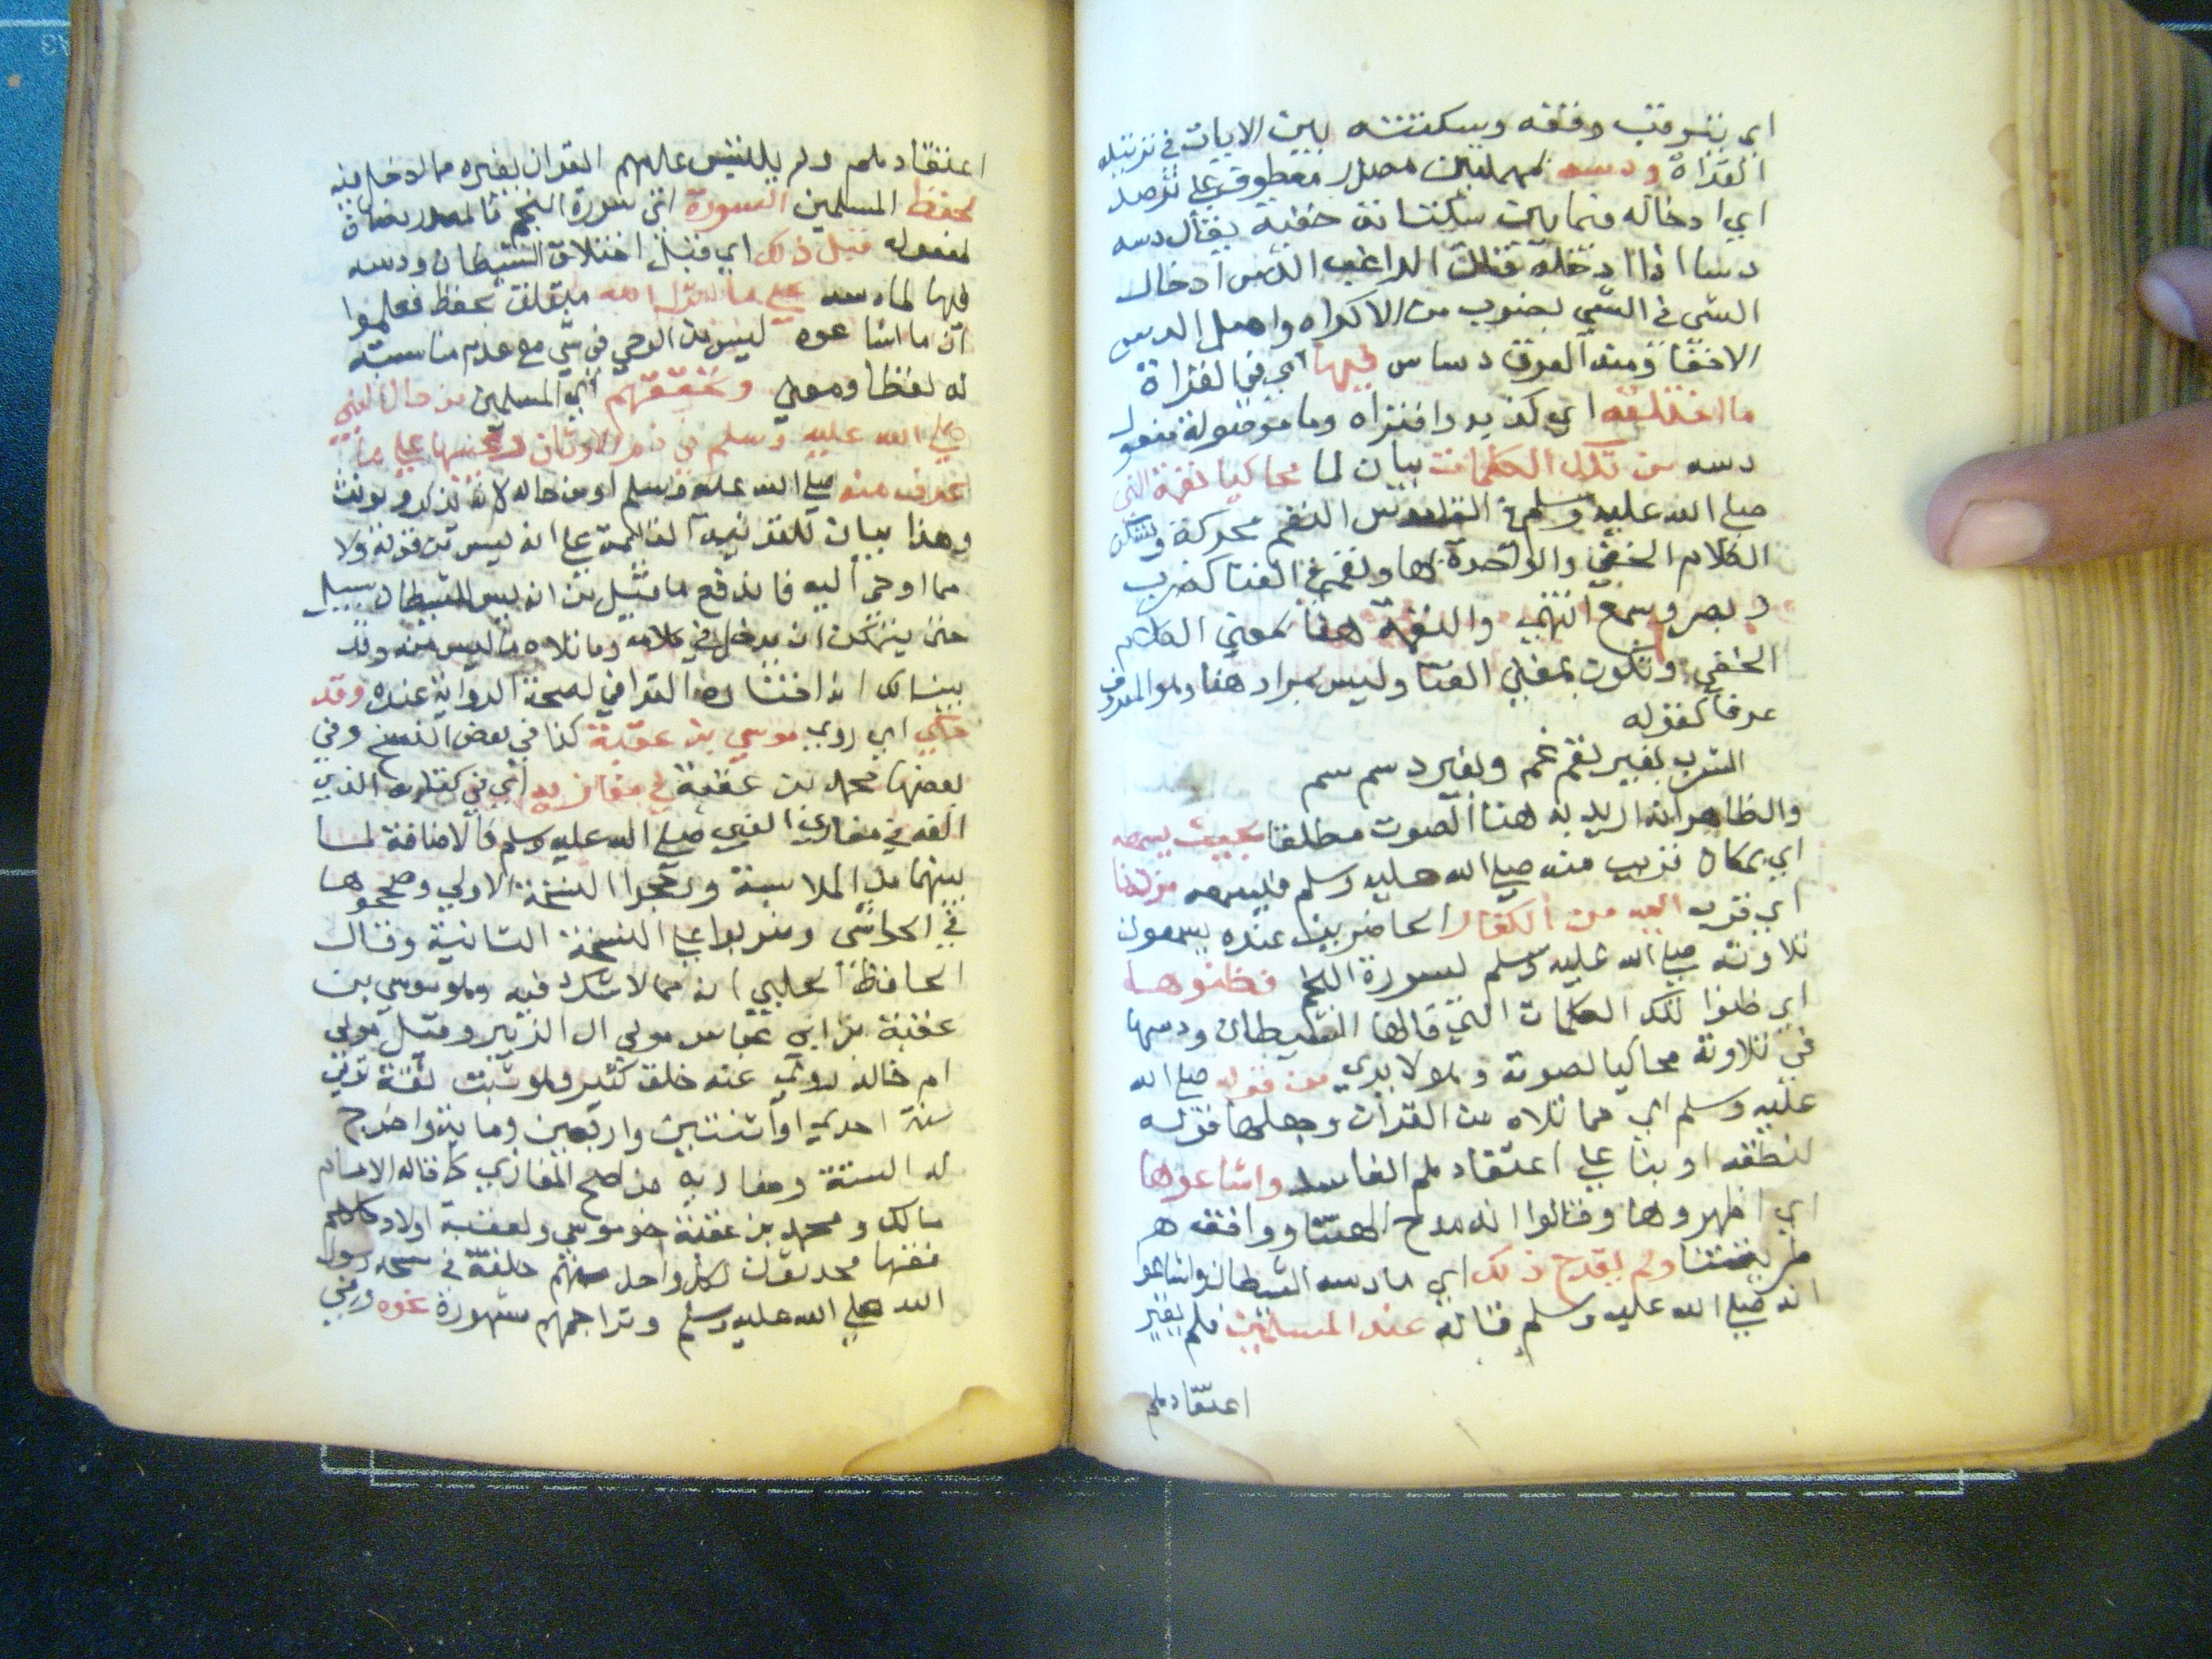 اي بترقب وقفه وسكتته بين الايات في ترتيله
القراة ودسه بمهملتين مصدر معطوف على ترصد
اي ادخاله فيما بين سكتاته خفية يقال دسه
دسا اذا ادخله قال الراغب الدس ادخال
الشي في الشي بضرب من الاكراه واصل الدس
الاخفا ومنه العرق دساس فيها اي في القراة
ما اختلقه اي كذبه وافتراه وما موصولة مفعول
دسه من تلك الكلمات بيان لما محاكيا نغمة النبي
صلى الله عليه وسلم في القاموس النغم محركة وتسكن
الكلام الخفي والواحدة بها ونغم في الغنا كضرب
ونصر وسمع انتهى والنغمة هنا بمعنى الكلام
الخفي وتكون بمعنى الغنا وليس بمراد هنا وهو المعروف
عرفا كقوله
الشرب بغير نغم غم وبغير دسم سم
والظاهر انه اريد به هنا الصوت مطلقا بحيث يسمعه
اي بمكان قريب منه صلى الله عليه وسلم فليسمعه من دنا
اي قرب اليه من الكفار الحاضرين عنده يسمعون
تلاوته صلى الله عليه وسلم لسورة النجم فظنوها
اي ظنوا تلك الكلمات التي قالها الشيطان ودسها
في تلاوته محاكيا لصوته وهو لا يدري من قوله صلى الله
عليه وسلم اي مما تلاه من القران وجعلها قوله
لنطقه او بنا على اعتقادهم الفاسد واشاعوها
اي اظهروها وقالوا انه مدح الهتنا ووافقه هر
طريقتنا ولم يقدح ذلك اي ما دسه الشيطان واشاعوا
انه صلى الله عليه وسلم قاله عند المسلمين فلم يغير
اعتقادهم
اعتقادهم ولم يلتبس عليهم القران بغيره مما ادخل فيه
لحفظ المسلمين السورة اي سورة النجم فالمصدر مضاف
لمفعوله قبل ذلك اي قبل اختلاق الشيطان ودسه
فيها لما دسه على ما انزل الله متعلق بحفظ فعلموا
ان ما اشاعوه ليس من الوحي في شي مع عدم مناسبته
له لفظا ومعنى وتحققهم اي المسلمين من حال النبي
صلى الله عليه وسلم في ذم الاوثان وعيبها على ما
عرف منه صلى الله عليه وسلم او من حاله لانه يذكر ويونث
وهذا بيان للقرينة القائمة على انه ليس من قوله ولا
مما اوحي اليه فاندفع ما قيل من انه ليس للشيطان سبيل
حتى يتمكن ان يدخل في كلامه وما تلاه ما ليس منه وقد
بينا لك انه اختاره القرافي لصحة الرواية عنده وقد
حكى اي روى موسى بن عقبة كذا في بعض النسخ وفي
بعضها محمد بن عقبة في مغازيه اي في كتابه الذي
الفه في مغازي النبي صلى الله عليه وسلم فالاضافة لما
بينهما من الملابسة ورجحوا النسخة الاولى وصححوها
في الحواشي وضربوا على النسخة الثانية وقال
الحافظ الحلبي انه مما لا شك فيه وهو موسى بن
عقبة بن ابي عياش مولى ال الزبير وقيل مولى
ام خالد روى عنه خلق كثير وهو ثبت ثقة توفي
سنة احدى او اثنتين واربعين وماية واخرج
له الستة ومغازيه من اصح المغازي كما قاله الامام
مالك ومحمد بن عقبة اخو موسى ولعقبة اولاد كلهم
فقها محدثون لكل واحد منهم حلقة في مسجد رسول
الله صلى الله عليه وسلم وتراجمهم مشهورة نحوه وفي